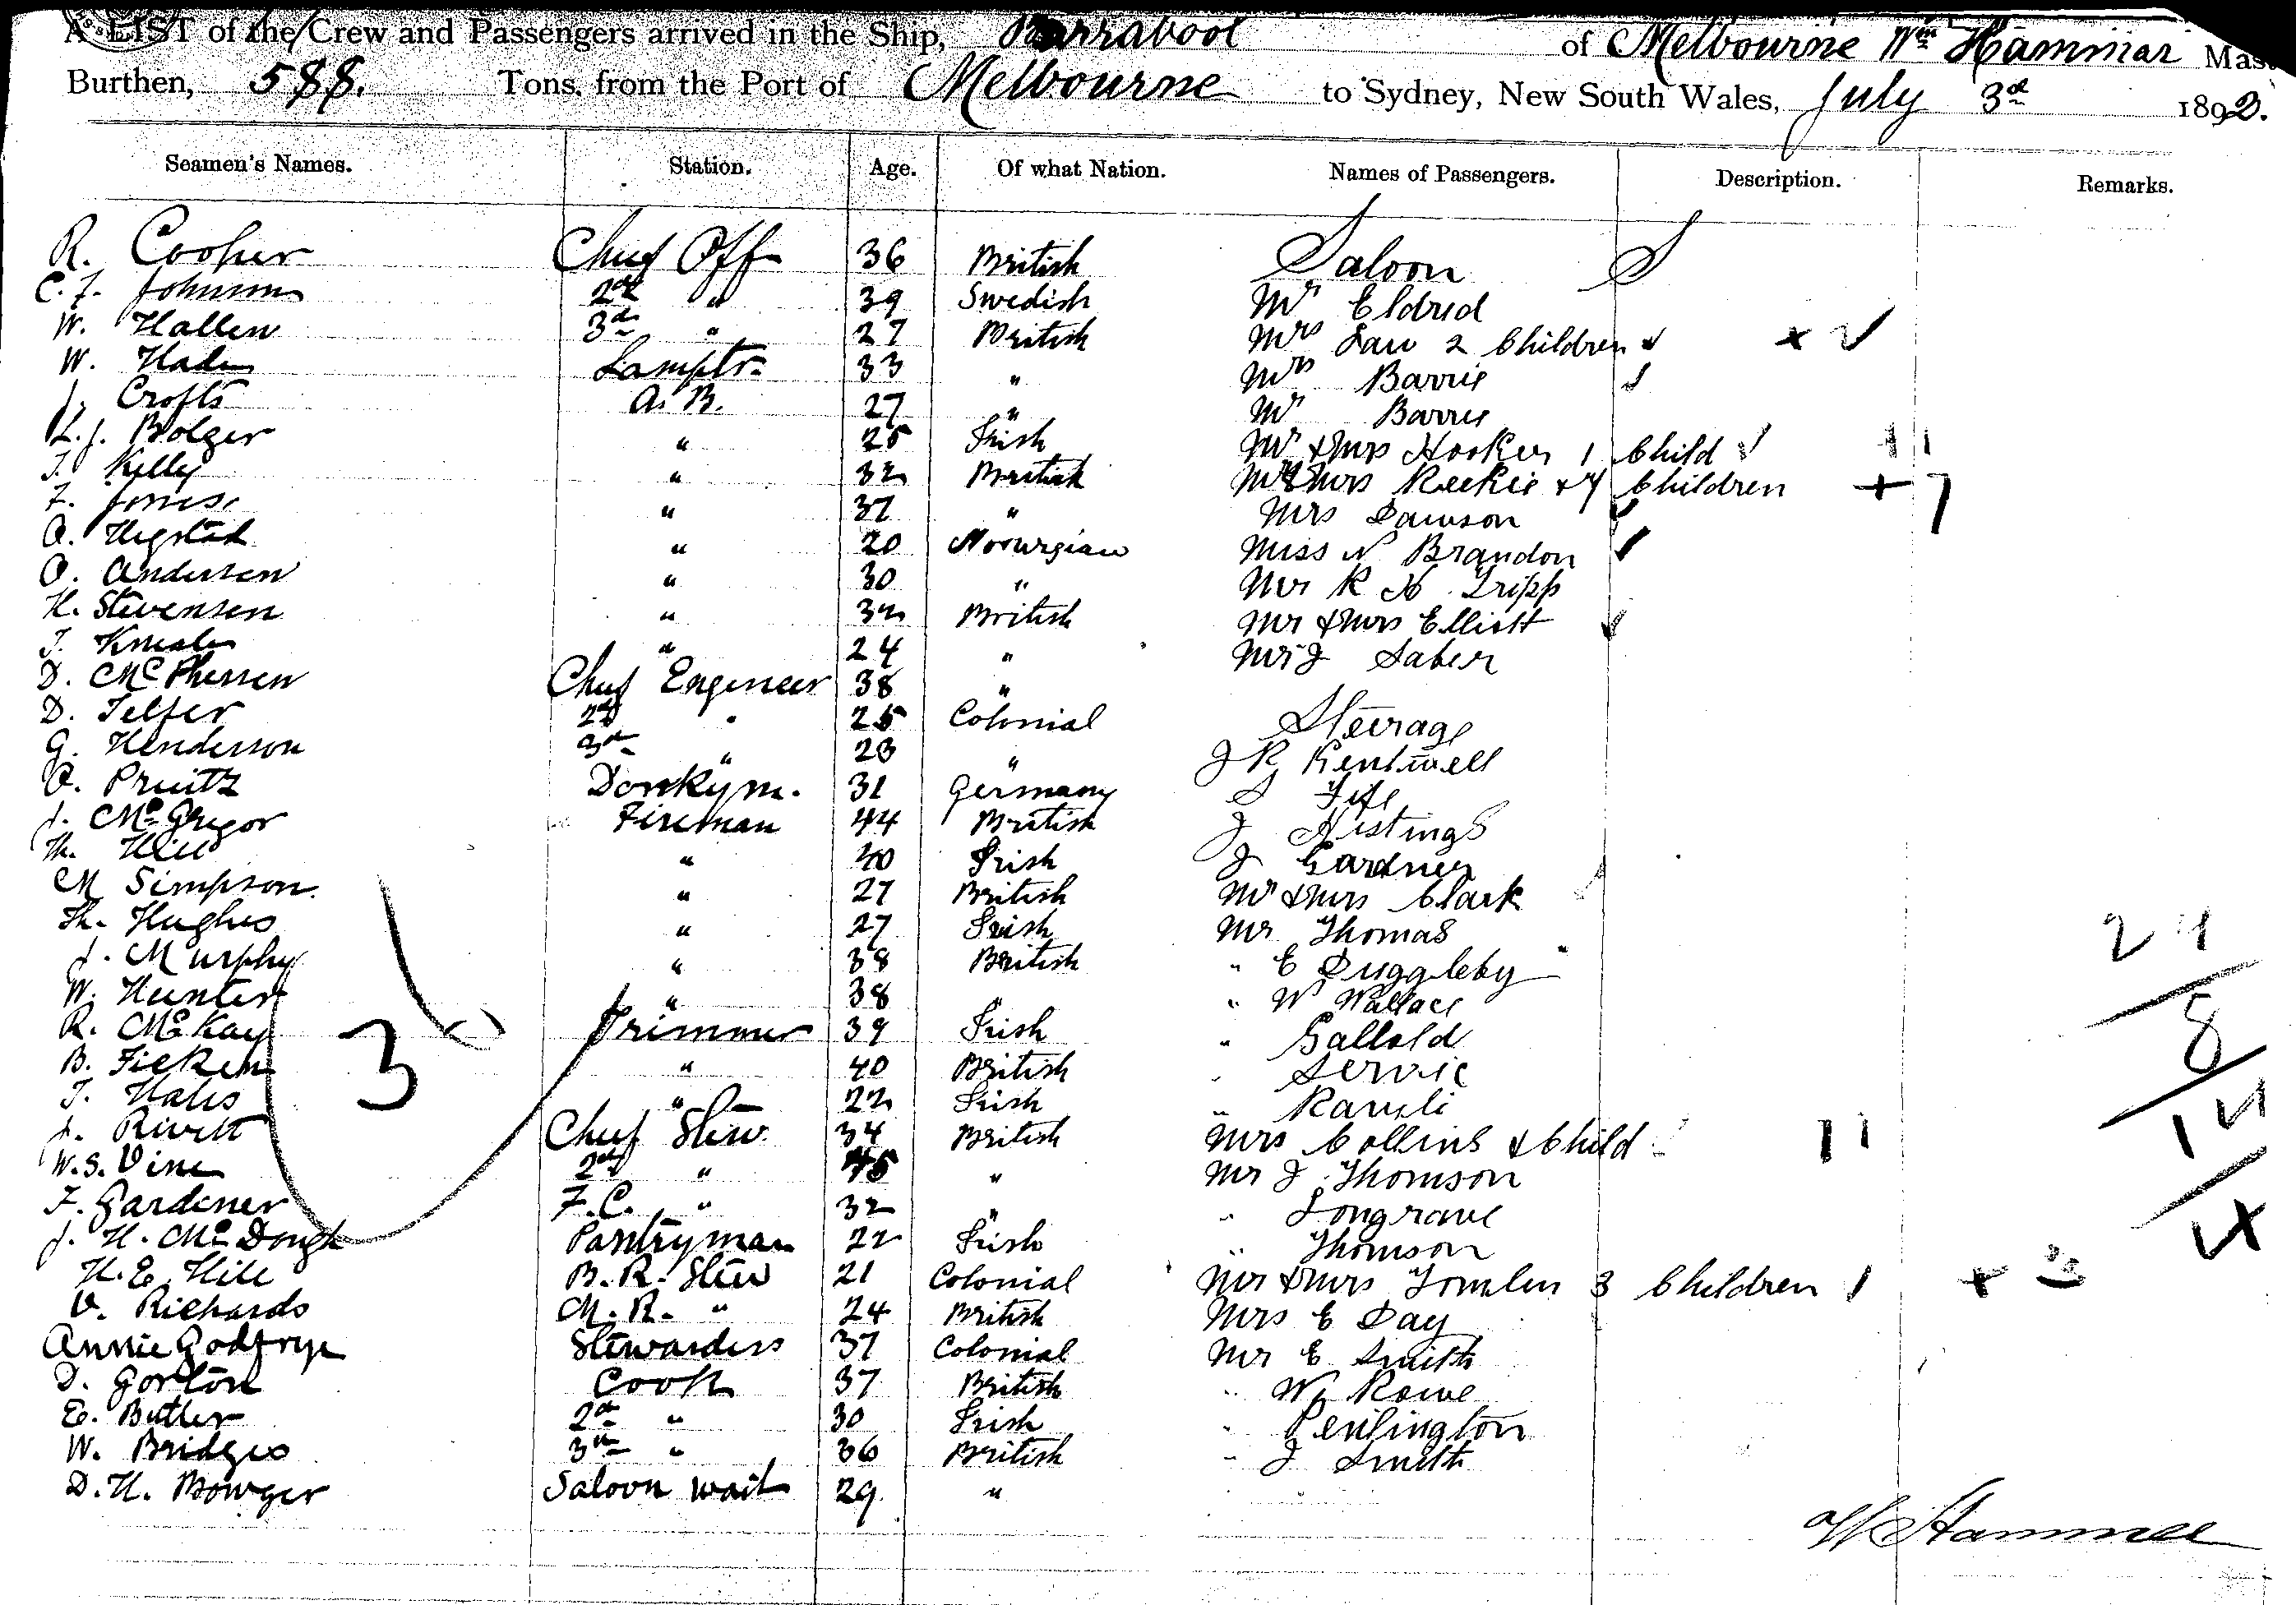 A LIST of the Crew and Passengers arrived in the Ship, Barrabool of Melbourne Wm Hammar Mas
Burthen, 588. Tons, from the Port of Melbourne to Sydney, New South Wales, July 3rd 1892.
Seamen's Names. Station. Age. Of what Nation. Names of Passengers. Description. Remarks.
R. Cooper Chief Off 36 British Saloon S
C. F. Johnson 2nd " 39 Swedish Mr Eldred
W. Hallen 3rd " 27 British Mrs Law 2 Children
W. Lamptr 33 " Mrs Barrie
J. Crofts A. B. 27 " Mr Barrie
L. J. Bolger " 25 Irish Mr & Mrs Hooker 1 Child
T. Kelly " 32 British Mr & Mrs Reekie & 7 Children + 7
F. Jones " 37 " Mrs Dawson
O. Hegstad " 20 Norwegian Miss N Brandon
O. Andersen " 30 " Mr R H Tripp
H. Stevensen " 32 British Mr & Mrs Elliott
T. " 24 " Mr J Saber
D. McPhersen Chief Engineer 38 "
D. Telfer 2nd " 25 Colonial Steerage
G. Henderson 3rd " 23 " J R Kentwell
O. Pruitz Donkym. 31 Germany S Fife
J. McGregor Fireman 44 British J Histings
Th. Hill " 40 Irish J Gardner
M Simpson. " 27 British Mr & Mrs Clark
Th. Hughes " 27 Irish Mr Thomas
J. Murphy " 38 British " E Duggleby
W. Hunter " 38 " " W Wallace
R. McKay Trimmer 39 Irish "
B. Ficken " 40 British " Servic
T. Hales " 22 Irish "
J. Rivett Chief Stew. 34 British Mrs Collins & Child
W. S. Vine 2nd " 45 " Mr J Thomson
F. Gardener F. C. " 32 " " Longrave
J. H. McDough Pantryman 22 Irish " Thomson
H. E. Hill B. R. Stew 21 Colonial Mr & Mrs Tomlin 3 Children
V. Richards M. R. " 24 British Mrs E Day
Annie Godfrye Stewardess 37 Colonial Mr E Smith
D. Gorton Cook 37 British " W Rowe
E. Butler 2nd " 30 Irish " Penlington
W. Bridges 3rd " 36 British " J Smith
D. H. Bowger Saloon wait 29 "
3
8
14
W Hammar